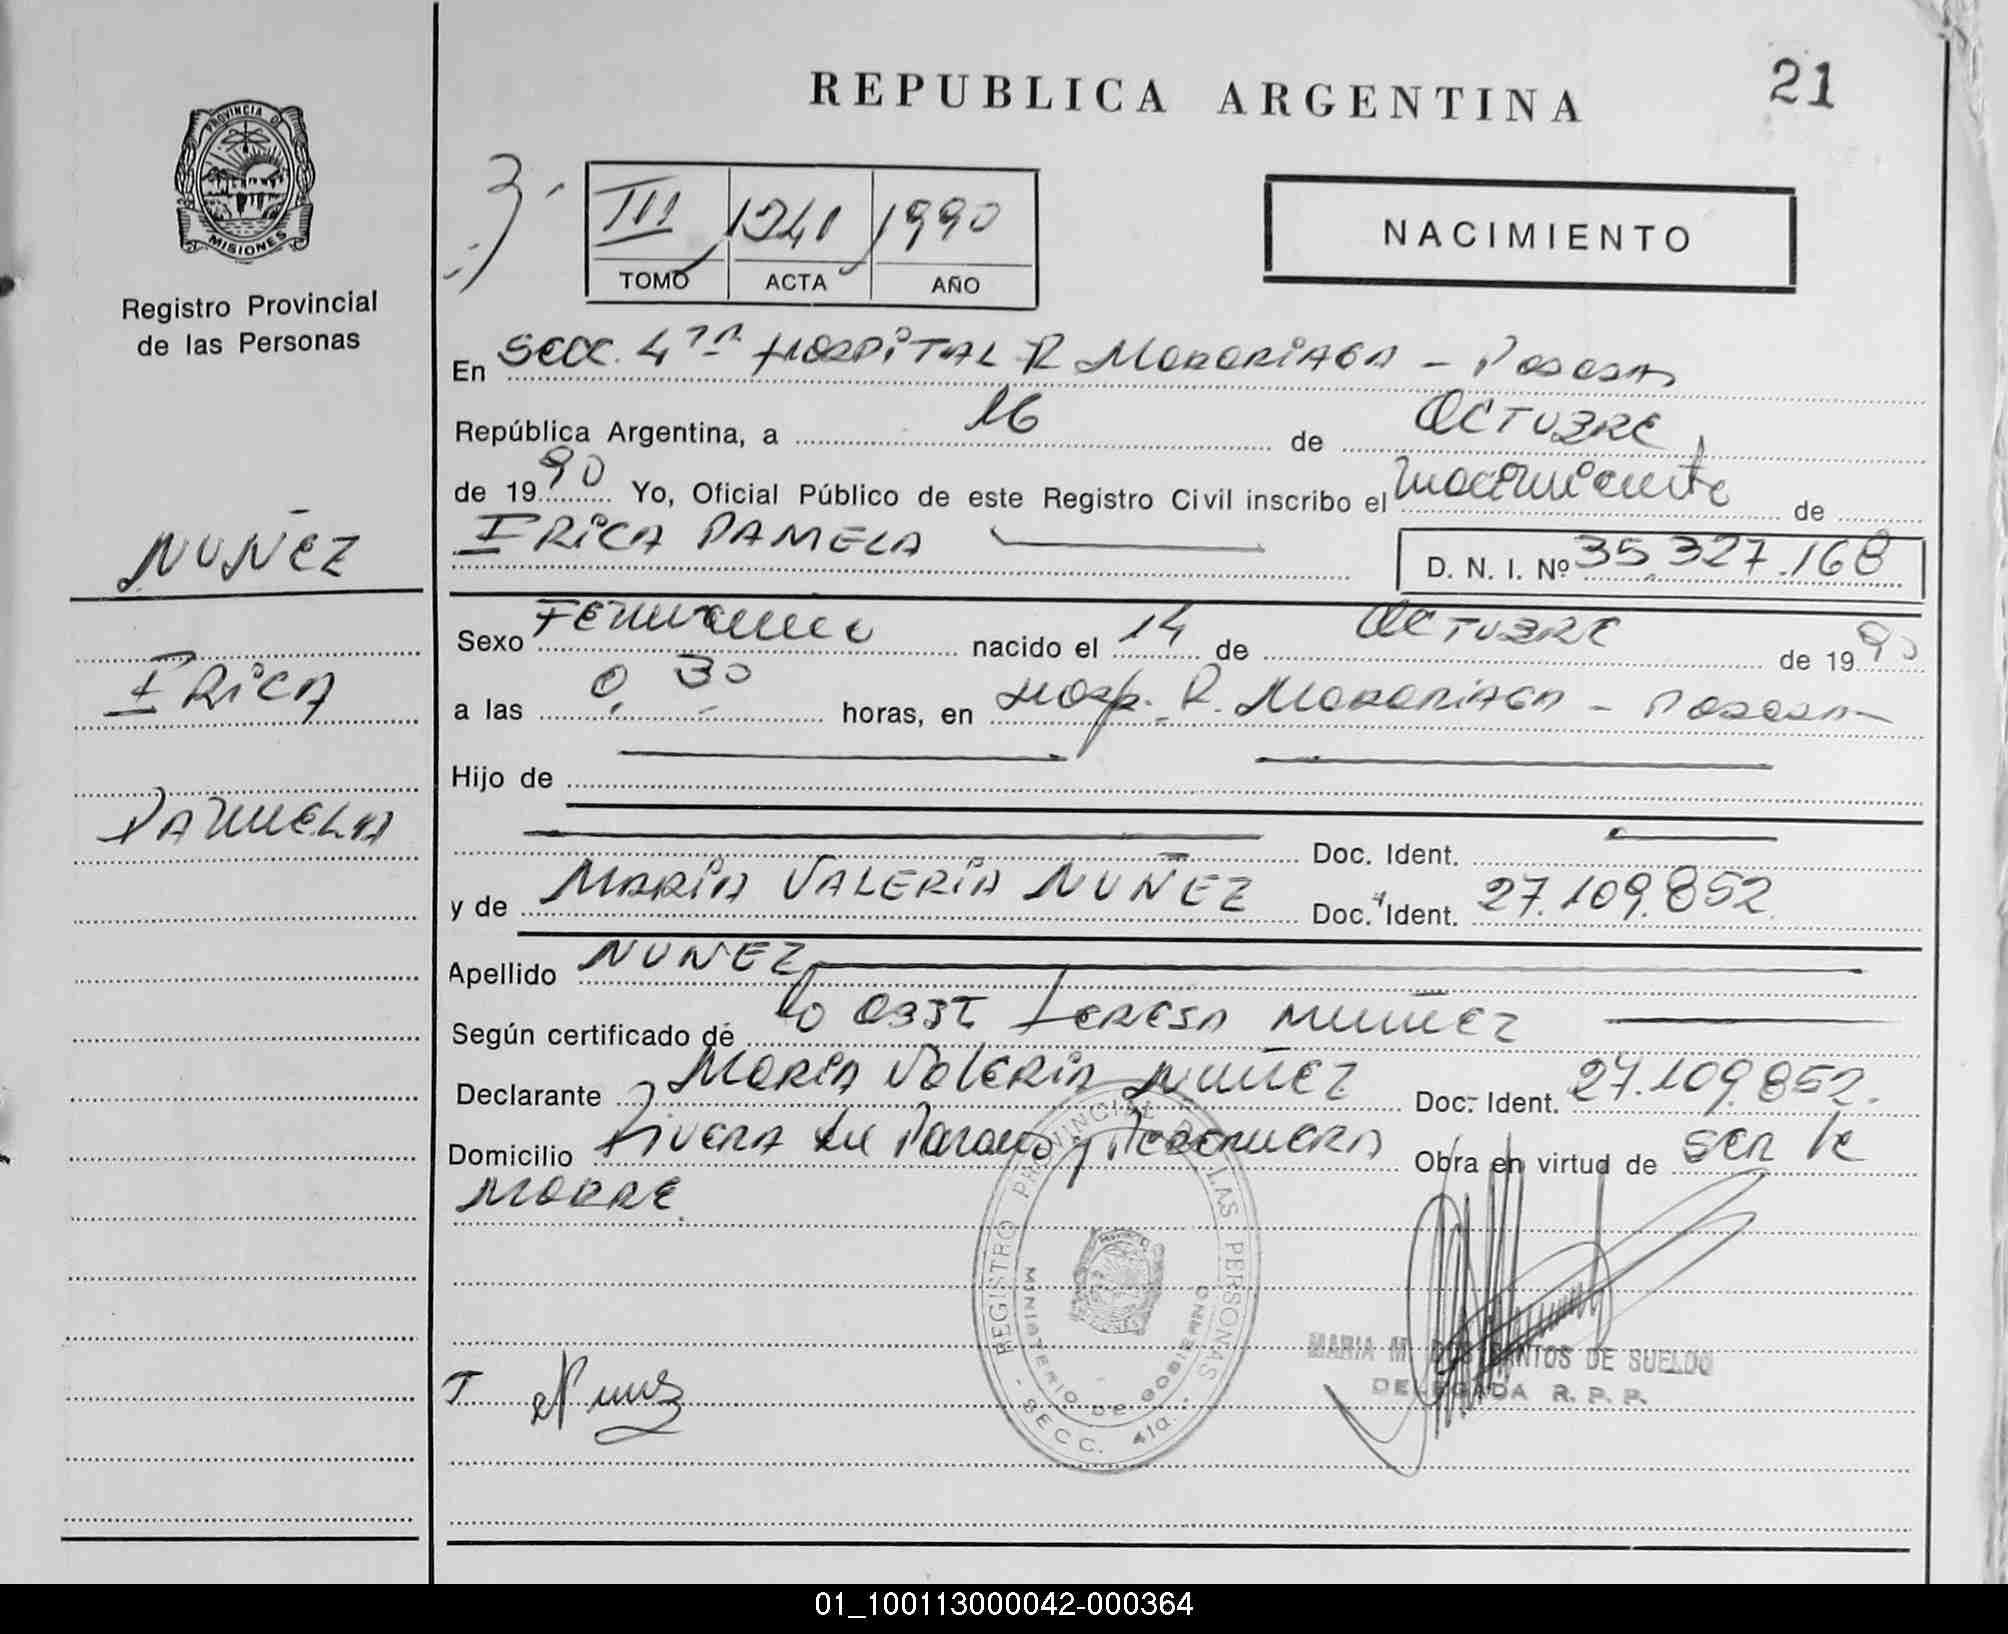 REPUBLICA ARGENTINA
21
PROVINCIA D
MISIONES
Registro Provincial
de las Personas
III 1241 1990
TOMO ACTA AÑO
NACIMIENTO
En SECC. 4ta HOSPITAL R MADARIAGA -
República Argentina, a 16 de OCTUBRE
de 1990 Yo, Oficial Público de este Registro Civil inscribo el nacimiento de
IRICA PAMELA
D. N. I. Nº 35.327.168
NUÑEZ
IRICA
PAMELA
Sexo FEMENINO nacido el 14 de OCTUBRE de 1990
a las 0,30 horas, en Hosp. R. MADARIAGA -
Hijo de
Doc. Ident.
y de MARIA VALERIA NUÑEZ Doc. Ident. 27.109.852
Apellido NUÑEZ
Según certificado de la OBST TERESA
Declarante MARIA VALERIA NUÑEZ Doc. Ident. 27.109.852.
Domicilio Obra en virtud de SER la
MADRE.
REGISTRO PROVINCIAL DE LAS PERSONAS
MINISTERIO DE GOBIERNO
- SECC. 4ta. -
MARIA M. DOS SANTOS DE SUELDO
DELEGADA R. P. P.
01_100113000042-000364